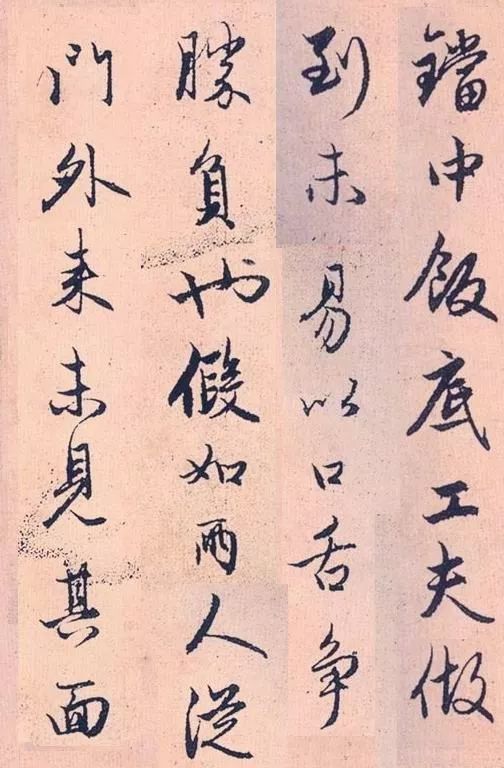 鐺中飯底工夫做
到未易以口舌争
勝負也假如兩人從
門外來未見其面